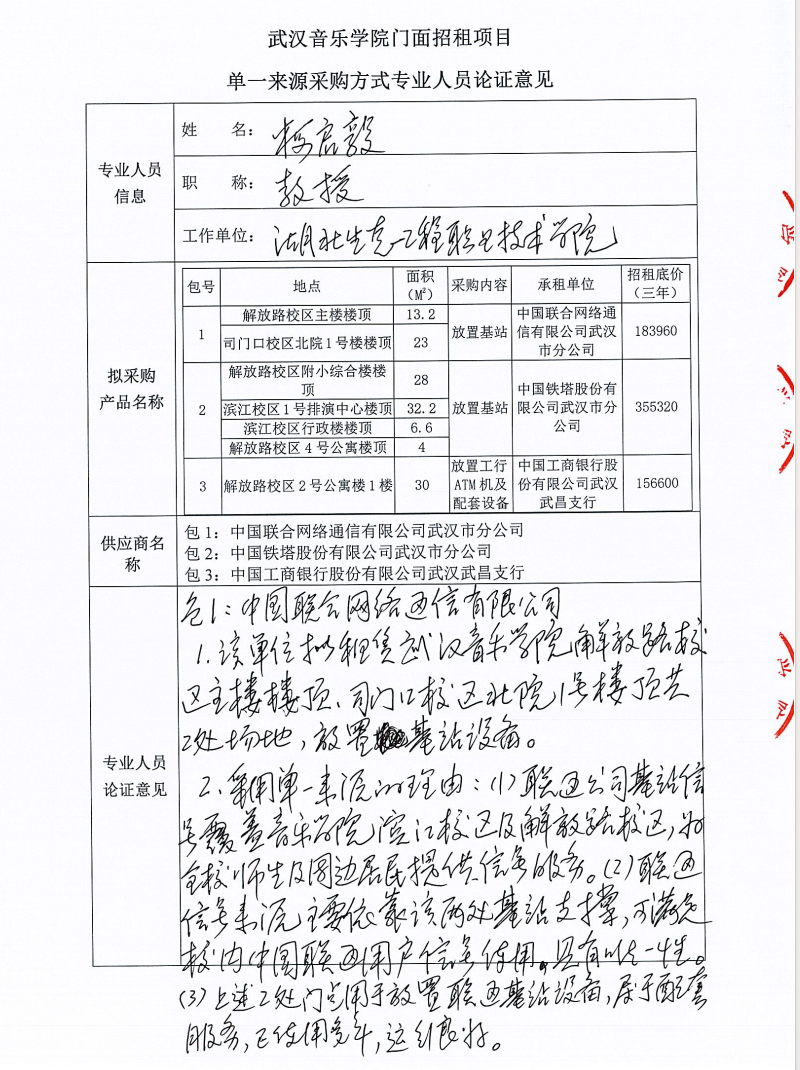 武汉音乐学院门面招租项目
单一来源采购方式专业人员论证意见
专业人员
信息
姓 名：
职 称： 教授
工作单位： 湖北生态工程职业技术学院
拟采购
产品名称
包号 地点 面积（M²） 采购内容 承租单位 招租底价（三年）
1 解放路校区主楼楼顶 13.2 放置基站 中国联合网络通信有限公司武汉市分公司 183960
司门口校区北院1号楼楼顶 23
2 解放路校区附小综合楼楼顶 28 放置基站 中国铁塔股份有限公司武汉市分公司 355320
滨江校区1号排演中心楼顶 32.2
滨江校区行政楼楼顶 6.6
解放路校区4号公寓楼顶 4
3 解放路校区2号公寓楼1楼 30 放置工行ATM机及配套设备 中国工商银行股份有限公司武汉武昌支行 156600
供应商名
称
包1：中国联合网络通信有限公司武汉市分公司
包2：中国铁塔股份有限公司武汉市分公司
包3：中国工商银行股份有限公司武汉武昌支行
专业人员
论证意见
包1：中国联合网络通信有限公司
1.该单位拟租赁武汉音乐学院解放路校
区主楼楼顶、司门口校区北院1号楼顶共
2处场地，放置基站设备。
2、采用单一来源的理由：(1)联通公司基站信
号覆盖音乐学院滨江校区及解放路校区，为
全校师生及周边居民提供信号服务。(2)联通
信号来源主要依靠该两处基站支撑，可满足
校内中国联通用户信号使用。具有唯一性。
(3)上述2处门点用于放置联通基站设备，属于配套
服务，已使用多年，运行良好。